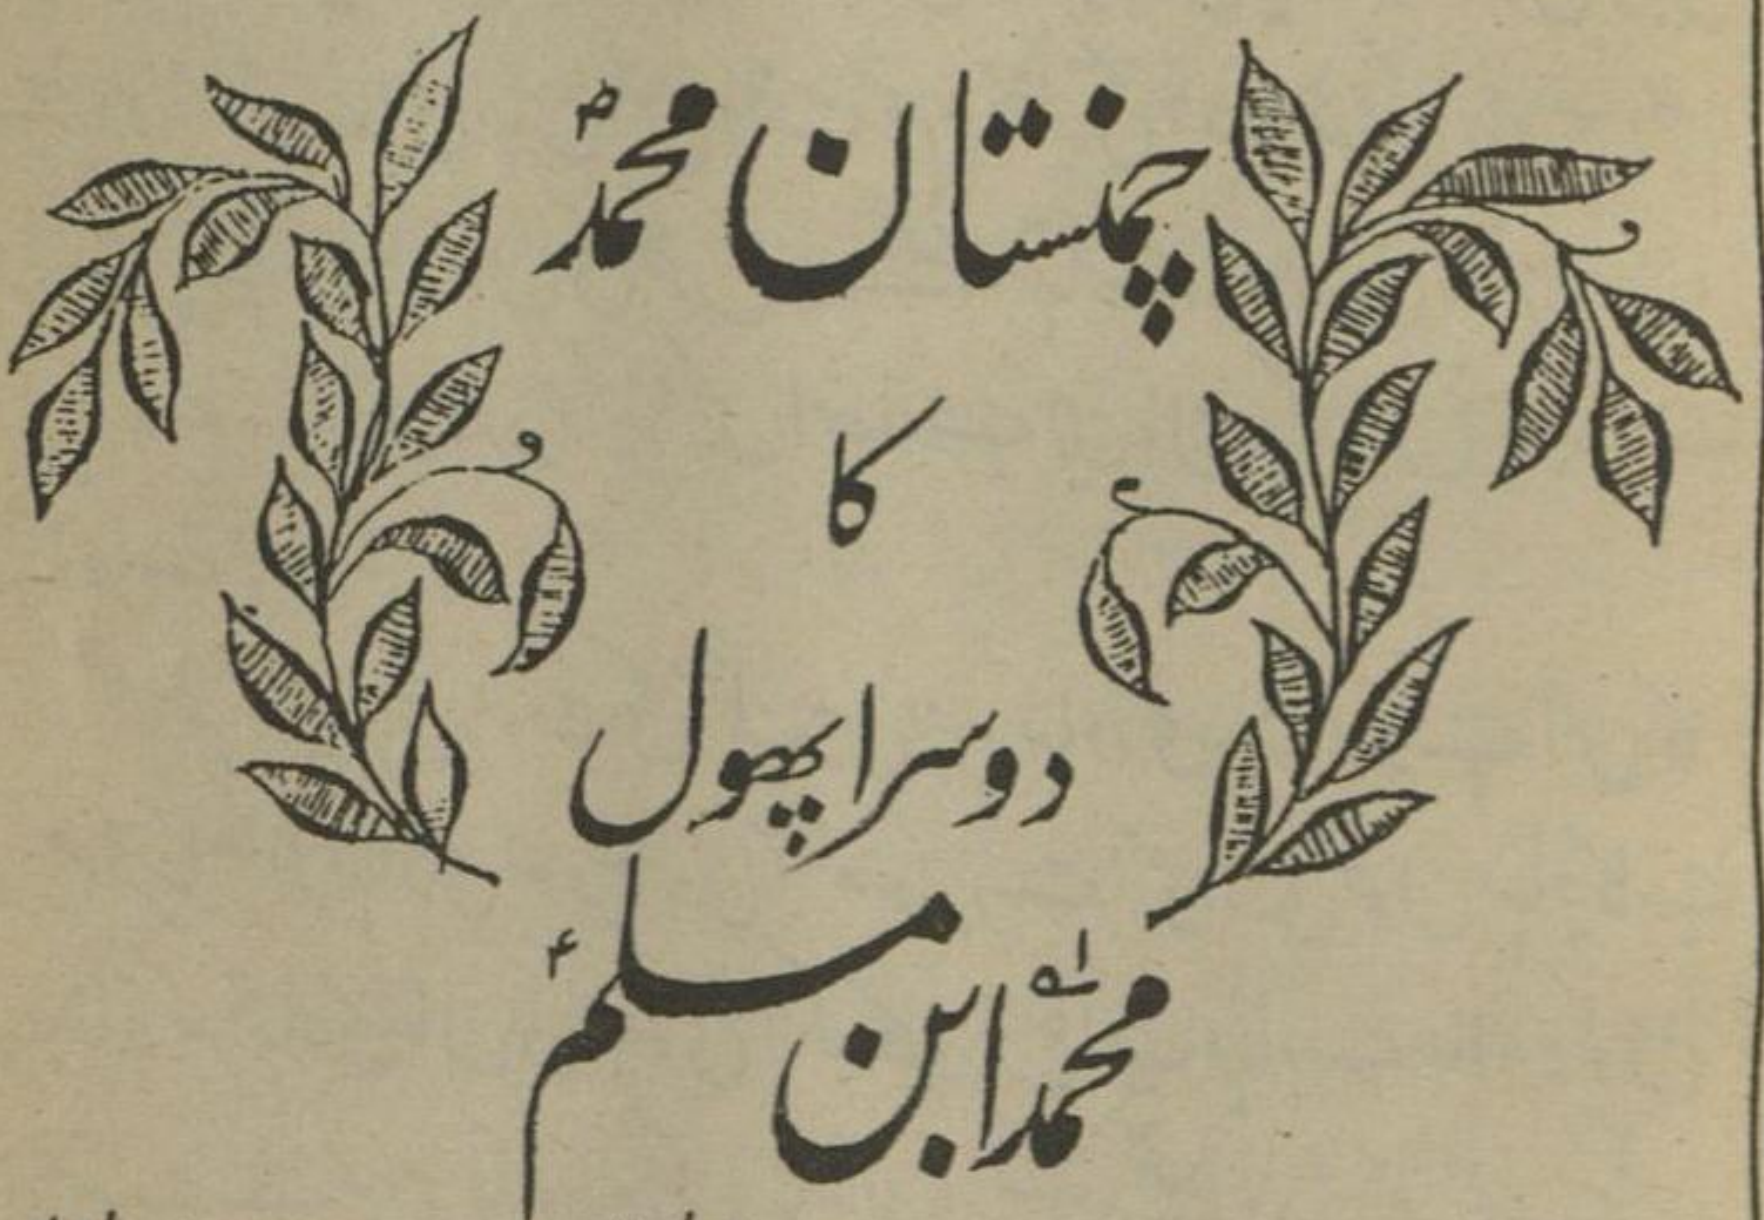 چمنستان محمدؐ
کا
دوسرا پھول
محمد ابن مسلمؑ